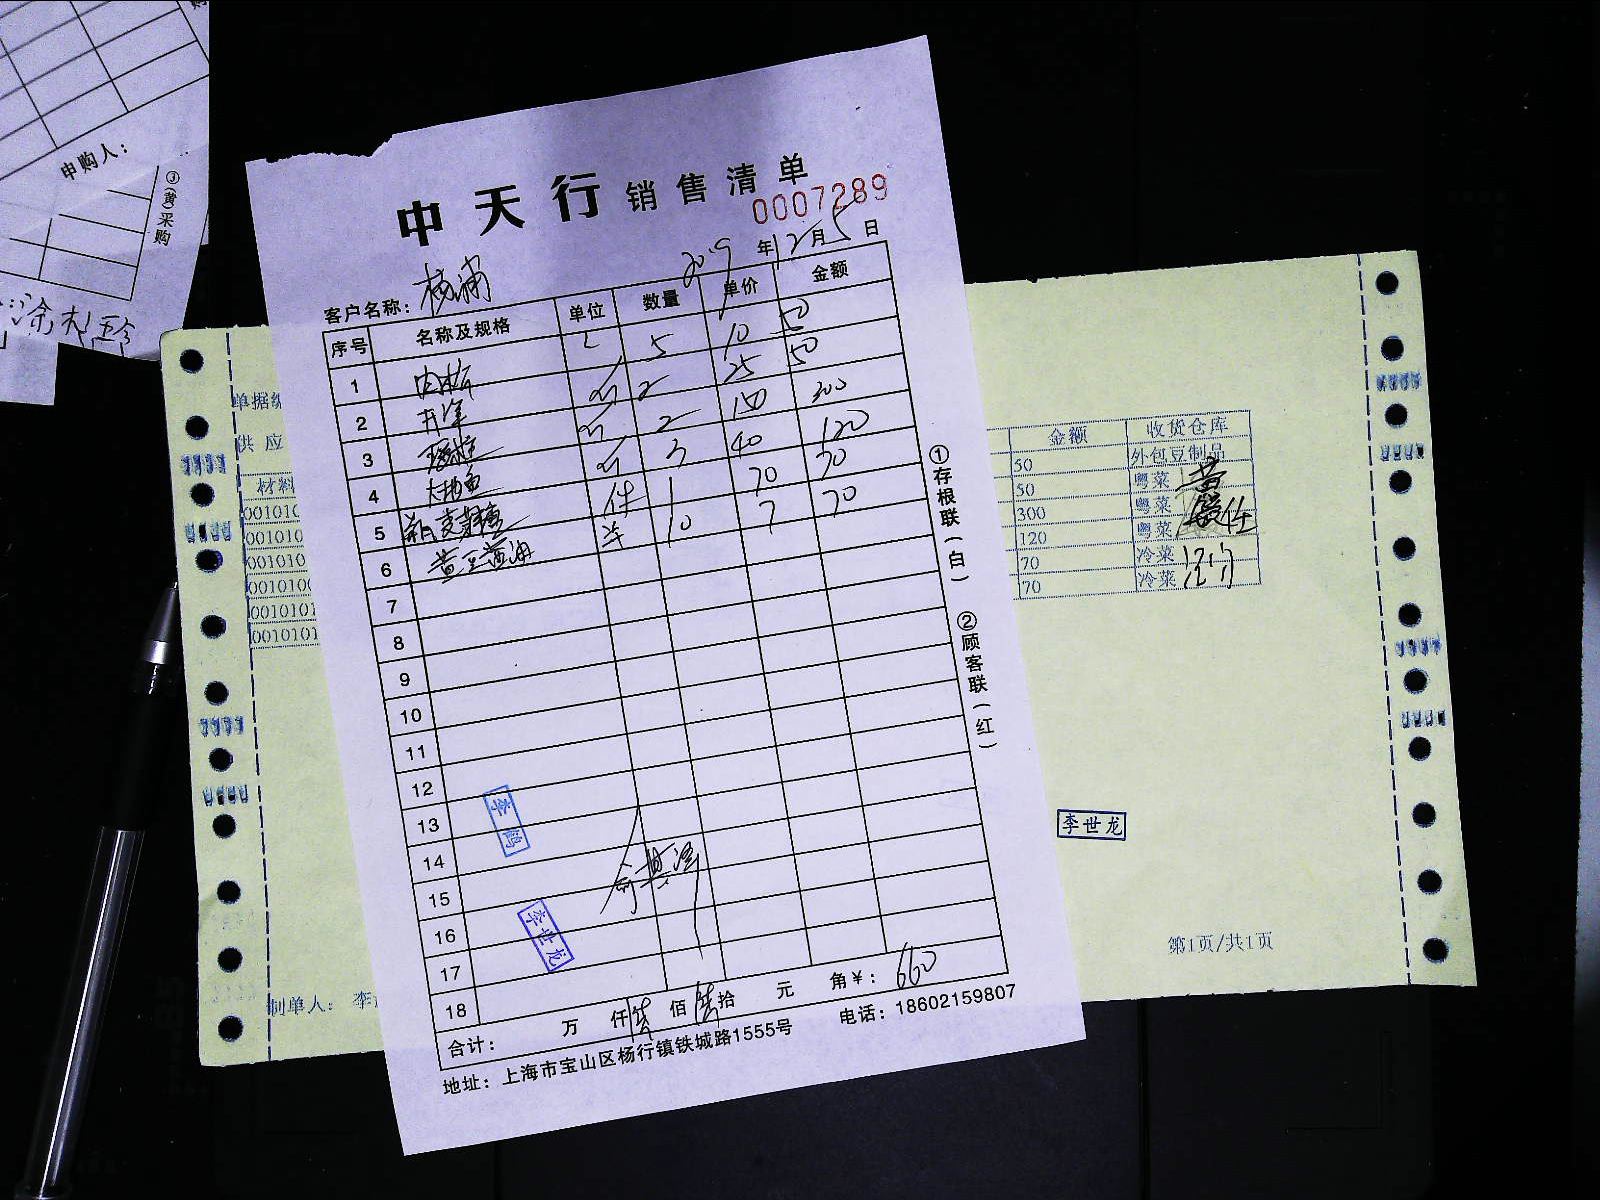 申购人：
③(黄)采购
中天行 销售清单
0007289
客户名称： 杨浦 2019年12月5日
序号 名称及规格 单位 数量 单价 金额
1 5 10 50
2 2 25 50
3 2 150 300
4 大地鱼 3 40 120
5 件 1 70 70
6 黄豆酱油 10 7 70
7
8
9
10
11
12
13
14
15
16
17
18
李世龙
合计： 万 仟 陆佰 陆拾 元 角 ¥： 660
地址：上海市宝山区杨行镇铁城路1555号 电话：18602159807
①存根联(白) ②顾客联(红)
单据编
供应
材料
001010
001010
001010
0010100
0010101
0010101
金额 收货仓库
50 外包豆制品
50 粤菜
300 粤菜
120 粤菜
70 冷菜
70 冷菜
李世龙
第1页/共1页
制单人： 李